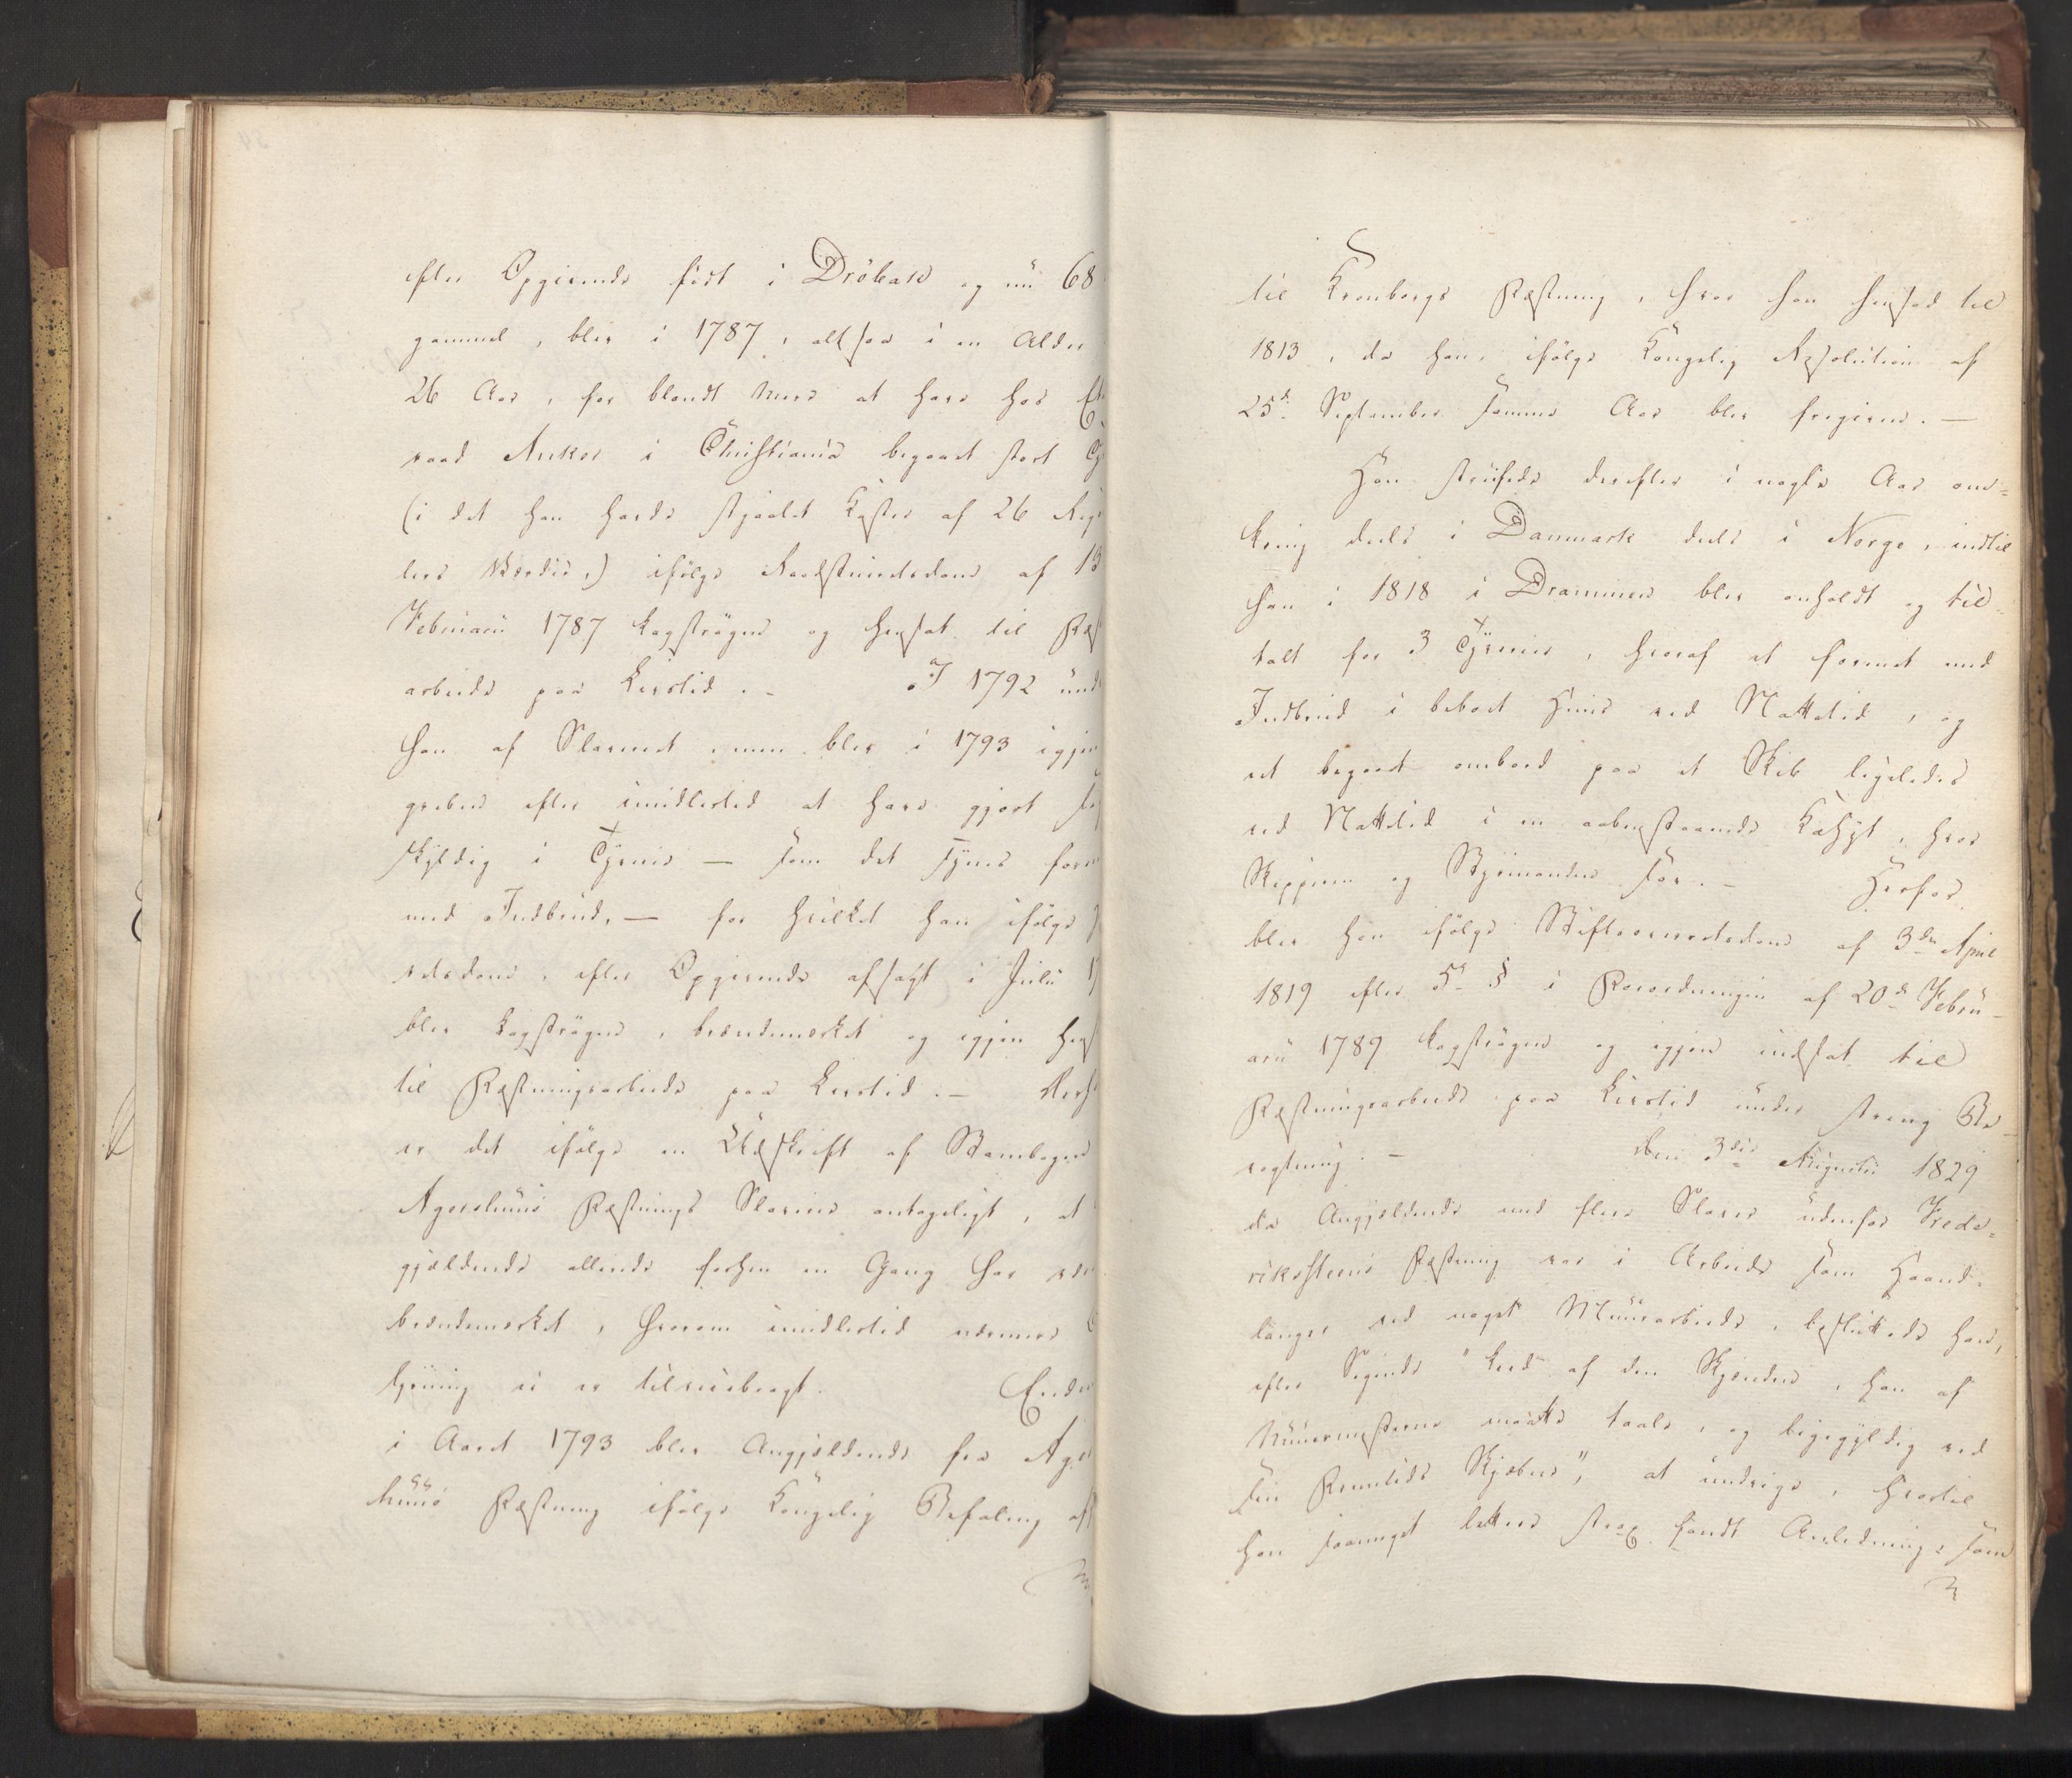 efter Opgivende födt i Dröbak og nu 68
gammel, blev i 1787, altsaa i en Alder
26 Aar, for blandt Mere at have hos Et
raad Anker i Christiania begaaet stort Ty
(i det han havde stjaalet Koster af 26 Rigs
lers Værdie,) ifölge Raadstueretsdom af 13
Februarii 1787 kagströgen og hensat til Fæst
arbeide paa Livstid. – I 1792 und
han af Slaveriet, men blev i 1793 igjen
greben efter imidlertid at have gjort si
skyldig i Tyverie — som det synes forö
med Indbrud, — for hvilket han ifölge
retsdom, efter Opgivende afsagt i Julii 17
blev kagströgen, brændemerket og igjen hens
til Fæstningsarbeide paa Livstid. –
er det ifölge en Udskrift af Stambogen
Agershuus Fæstnings Slaverie antageligt, at
gjældende allerede forhen en Gang har vær
brændemerket, hvorom imidlertid nærmere
lysning ei er tilveiebragt. Endn
i Aaret 1793 blev Angjældende fra Ager
huus Fæstning ifölge Kongelig Befaling aff
til Kronborgs Fæstning, hvor han hensad til
1813, da han, ifölge Kongelig Resolution af
25d September samme Aar blev frigiven. —
Han streifede derefter i nogle Aar om-
kring deels i Danmark deels i Norge, indtil
han i 1818 i Drammen blev anholdt og til-
talt for 3 Tyverier, hvoraf et forövet med
Indbrud i beboet Huus ved Nattetid, og
et begaaet ombord paa et Skib ligeledes
ved Nattetid i en aabenstaaende Kahyt, hvor
Skipperen og Styrmanden sov. – Herfor
blev han ifölge Stiftsoverretsdom af 3die April
1819 efter 5t § i Forordningen af 20d Febru-
arii 1789 kagströgen og igjen indsat til
Fæstningsarbeide paa Livstid under streng Be-
vogtning. – Den 3die Augustii 1829
da Angjældende med flere Slaver udenfor Frede-
rikssteens Fæstning var i Arbeide som Haand-
langer ved noget Muurarbeide, besluttede han,
efter Sigende "keed af den Skjenden, han af
Muurmesterne maatte taale, og ligegyldig ved
sin Fremtids Skjæbne", at undvige, hvortil
han saameget lettere strax fandt Anledning, som